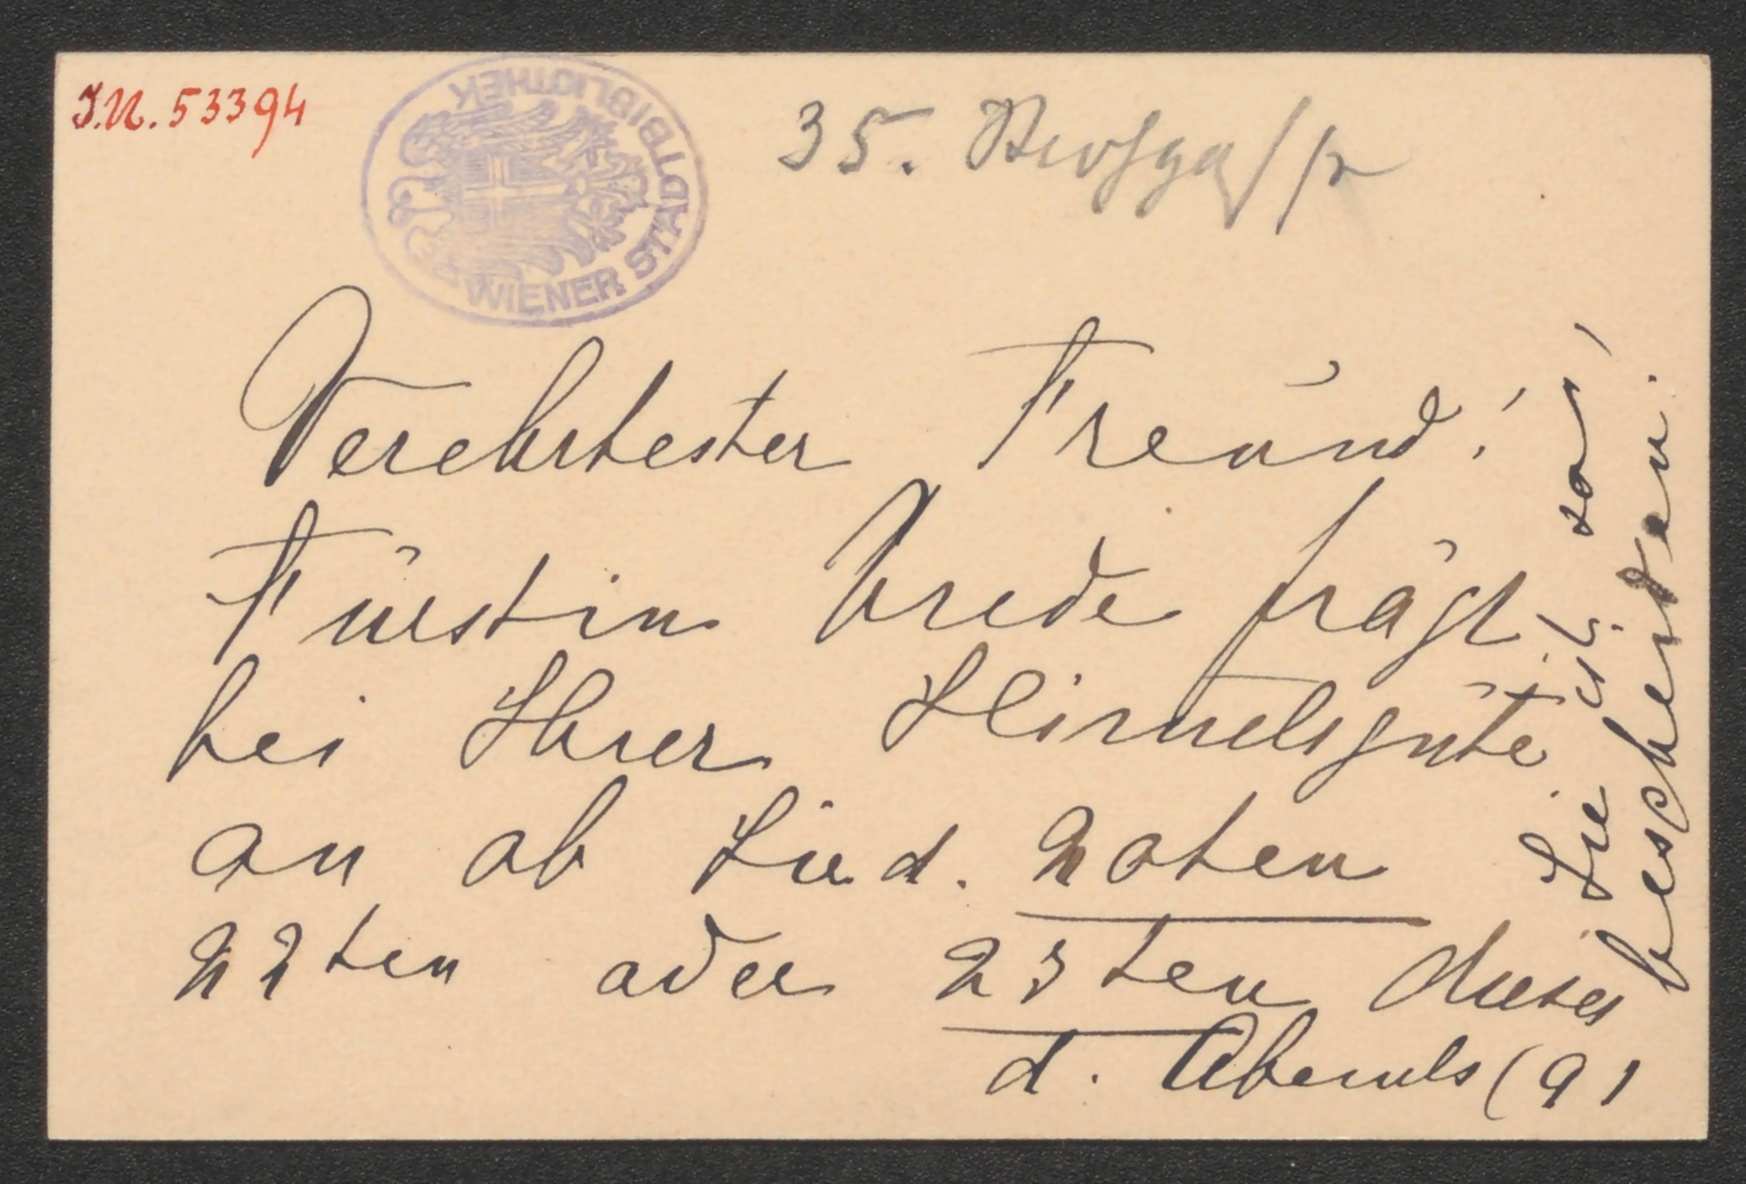 I.N. 53394
WIENER STADTBIBLIOTHEK
35.
Verehrtester Freund!
Fürstin Wrede frägt
bei Ihrer Himelsgüte
an ob Sie d. 20ten
22ten oder 23ten dieses
d. Abends (9)
Sie ist so
bescheiden.